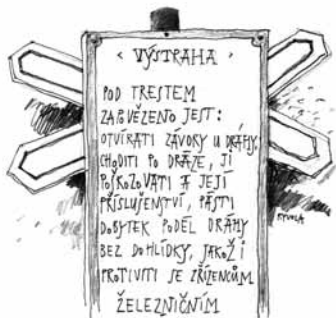 ‹ VÝSTRAHA ›
POD TRESTEM
ZAPOVĚZENO JEST:
OTVÍRATI ZÁVORY U DRÁHY,
CHODITI PO DRÁZE, JI
POŠKOZOVATI A JEJÍ
PŘÍSLUŠENSTVÍ, PÁSTI
DOBYTEK PODÉL DRÁHY
BEZ DOHLÍDKY, JAKOŽ I
PROTIVITI SE ZŘÍZENCŮM
ŽELEZNIČNÍM